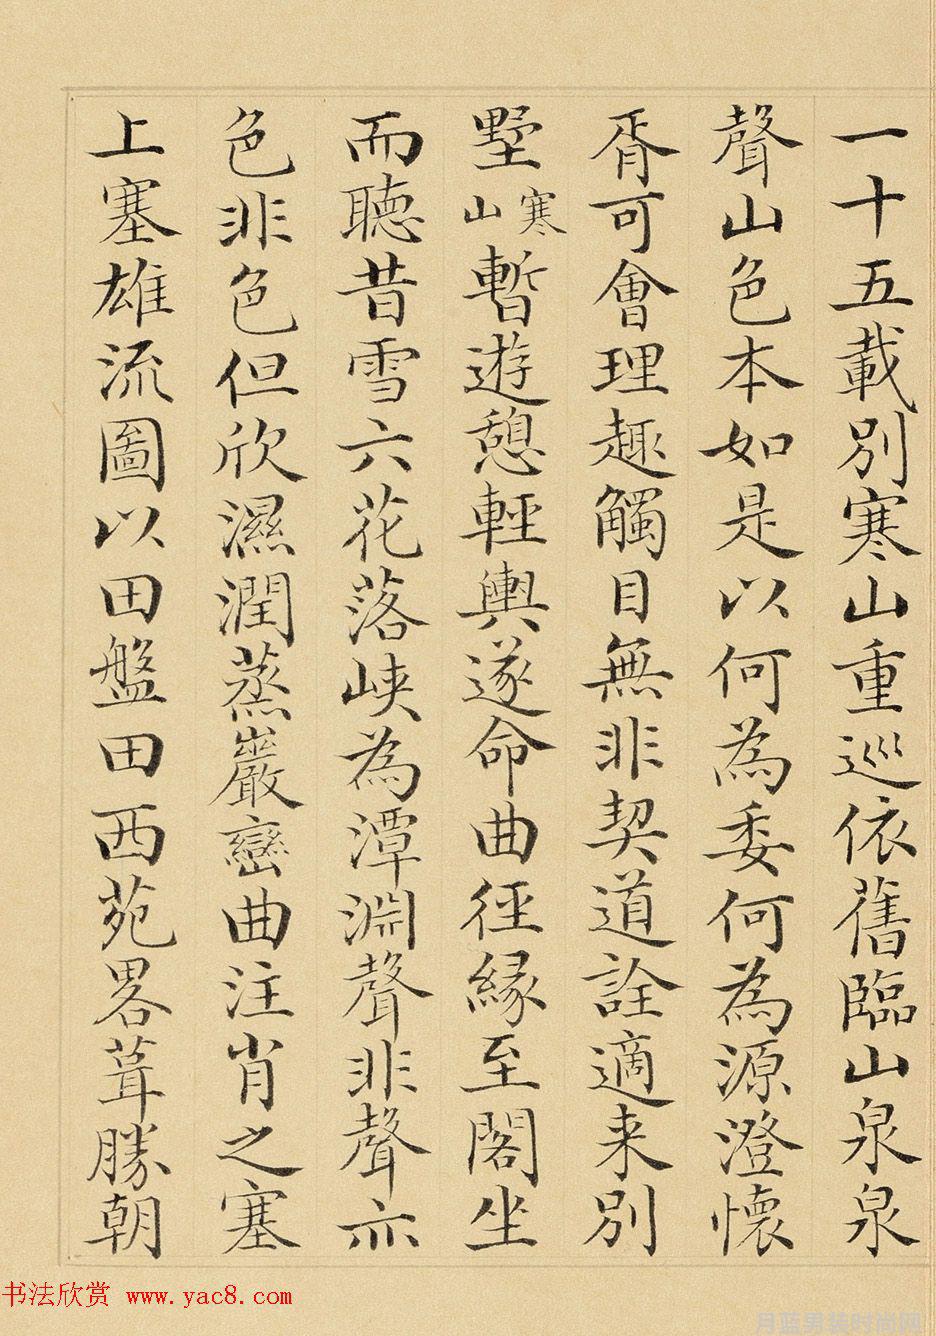 一十五載別寒山重巡依舊臨山泉泉
聲山色本如是以何為委何為源澄懷
胥可會理趣觸目無非契道詮適来別
墅寒山暫遊憩輕輿遂命曲徑緣至閣坐
而聽昔雪六花落峽為潭淵聲非聲亦
色非色但欣濕潤蒸巖巒曲注肖之塞
上塞雄流圖以田盤田西苑畧葺勝朝
书法欣赏 www.yac8.com
月蓝男装时尚网